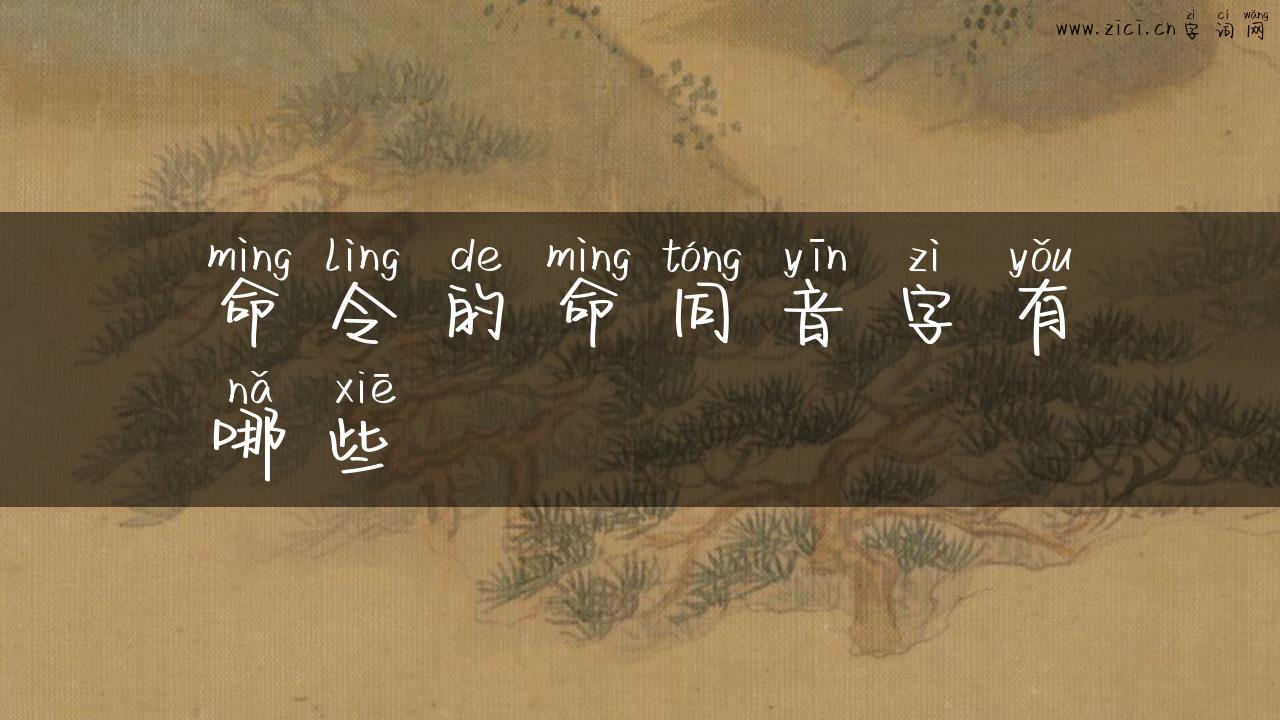 zì cí wǎng
www.zici.cn 字词网
mìng lìng de mìng tóng yīn zì yǒu
命令的命同音字有
nǎ xiē
哪些